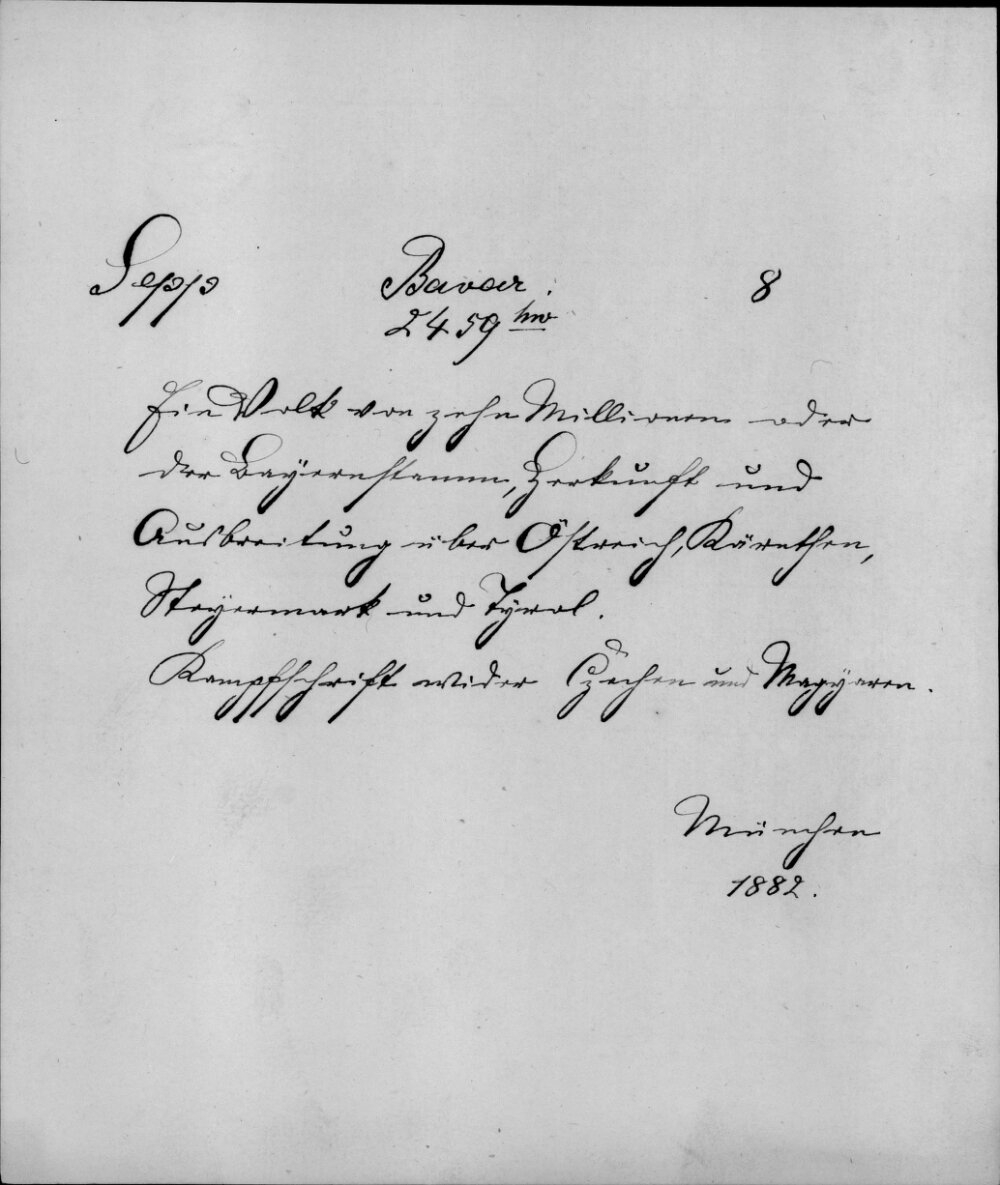 Sepp Bavar. 8
2459 hw
Ein Volk von zehn Millionen oder
der Bayernstamm, Herkunft und
Ausbreitung über Östreich, Kärnthen,
Steyermark und Tyrol.
Kampfschrift wider Czechen und Magyaren.
München
1882.